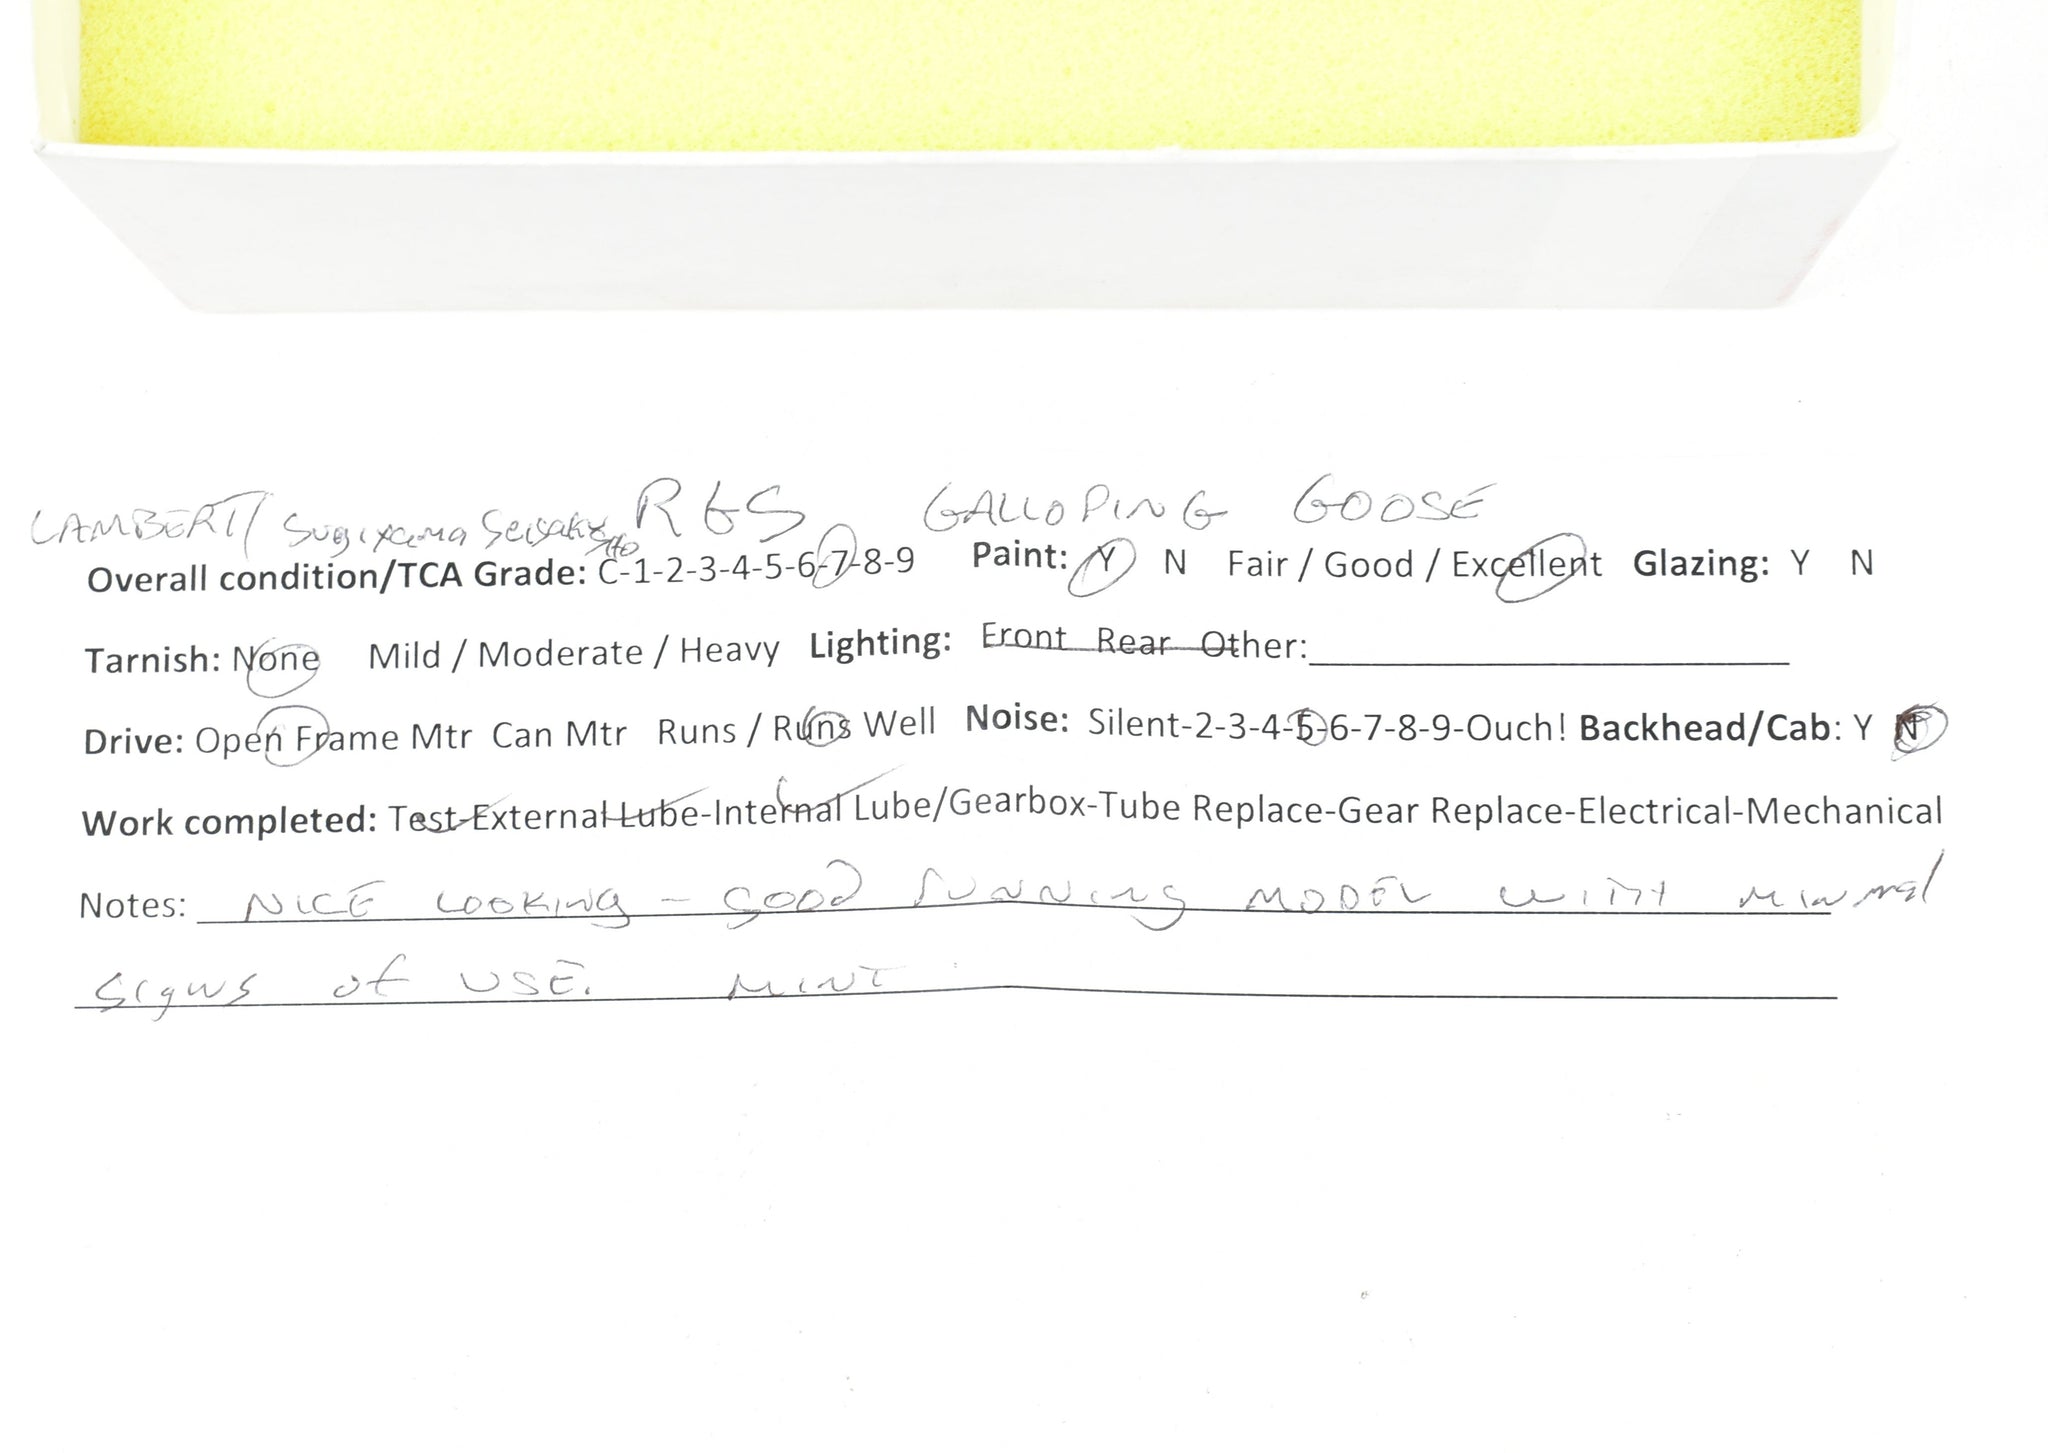 LAMBERT/ Sugiyama Seisakusho RGS GALLOPING GOOSE
Overall condition/TCA Grade: C-1-2-3-4-5-6-7-8-9 Paint: Y N Fair / Good / Excellent Glazing: Y N
Tarnish: None Mild / Moderate / Heavy Lighting: Front Rear Other:
Drive: Open Frame Mtr Can Mtr Runs / Runs Well Noise: Silent-2-3-4-5-6-7-8-9-Ouch! Backhead/Cab: Y N
Work completed: Test-External Lube-Internal Lube/Gearbox-Tube Replace-Gear Replace-Electrical-Mechanical
Notes: NICE LOOKING - GOOD running MODEL WITH MINIMAL
SIgNS of USE. MINT